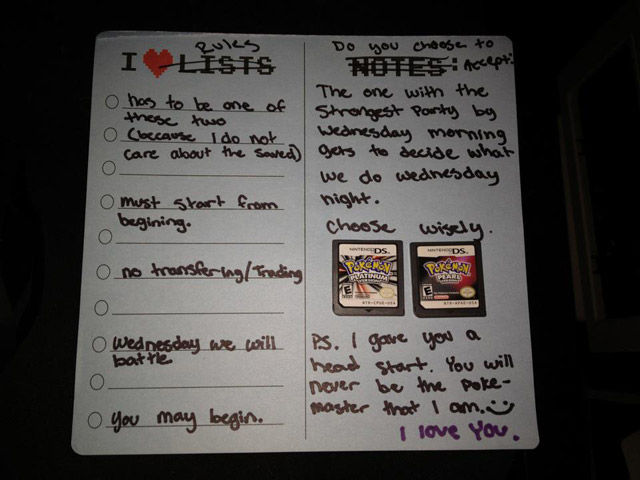 Rules
I ❤ LISTS
has to be one of
these two
(because I do not
care about the saved)
must start from
begining.
no transfering/Trading
Wednesday we will
battle
you may begin.
Do you choose to
NOTES: Accept:
The one with the
Strongest Party by
Wednesday morning
gets to decide what
we do wednesday
night.
choose wisely.
NINTENDO DS
POKéMON
PLATINUM
VERSION
E
NTR-CPUE-USA
NINTENDO DS
POKéMON
PEARL
VERSION
E
NTR-APAE-USA
PS. I gave you a
head start. You will
never be the Poke-
master that I am.
I love You.